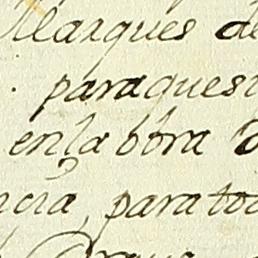 Marques de
paraquesi
enla obra
ncia, parato